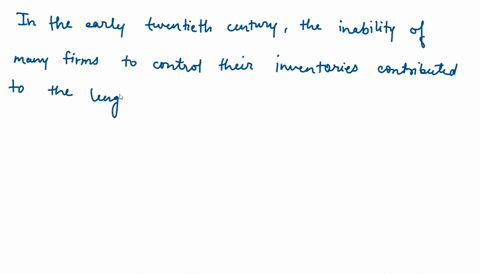 In the early twentieth century, the inability of
many firms to control their inventories contributed
to the leng